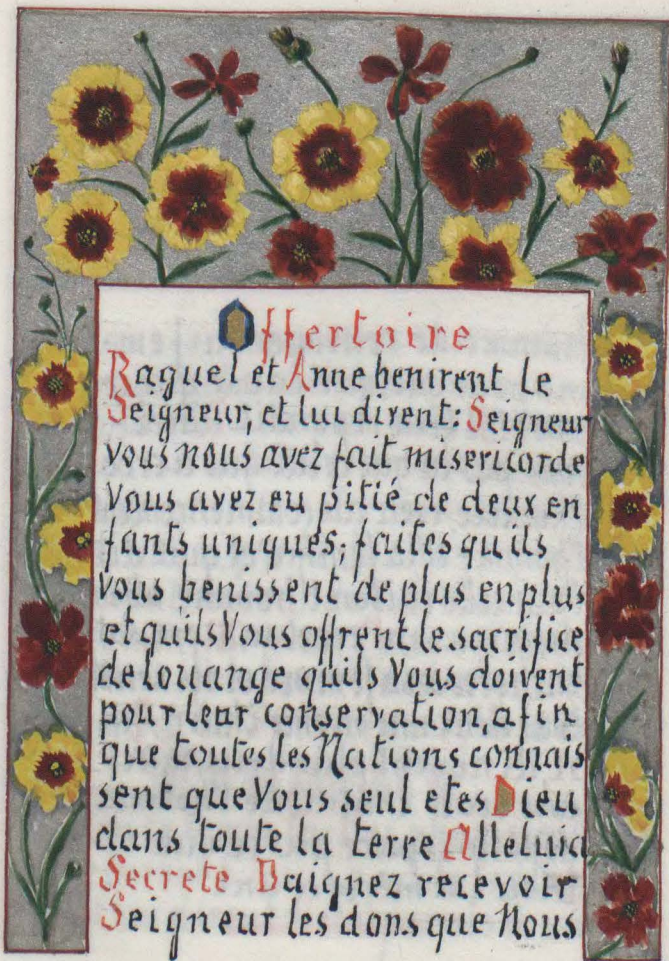 Offertoire
Raguel et Anne benirent Le
Seigneur, et lui dirent: Seigneur
Vous nous avez fait misericorde
Vous avez eu pitié de deux en
fants uniques; faites quils
Vous benissent de plus en plus
et quils Vous offrent le sacrifice
de louange quils Vous doivent
pour leur conservation, afin
que toutes les Nations connais
sent que Vous seul etes Dieu
dans toute la terre Alleluia
Secrete Daignez recevoir
Seigneur les dons que Nous